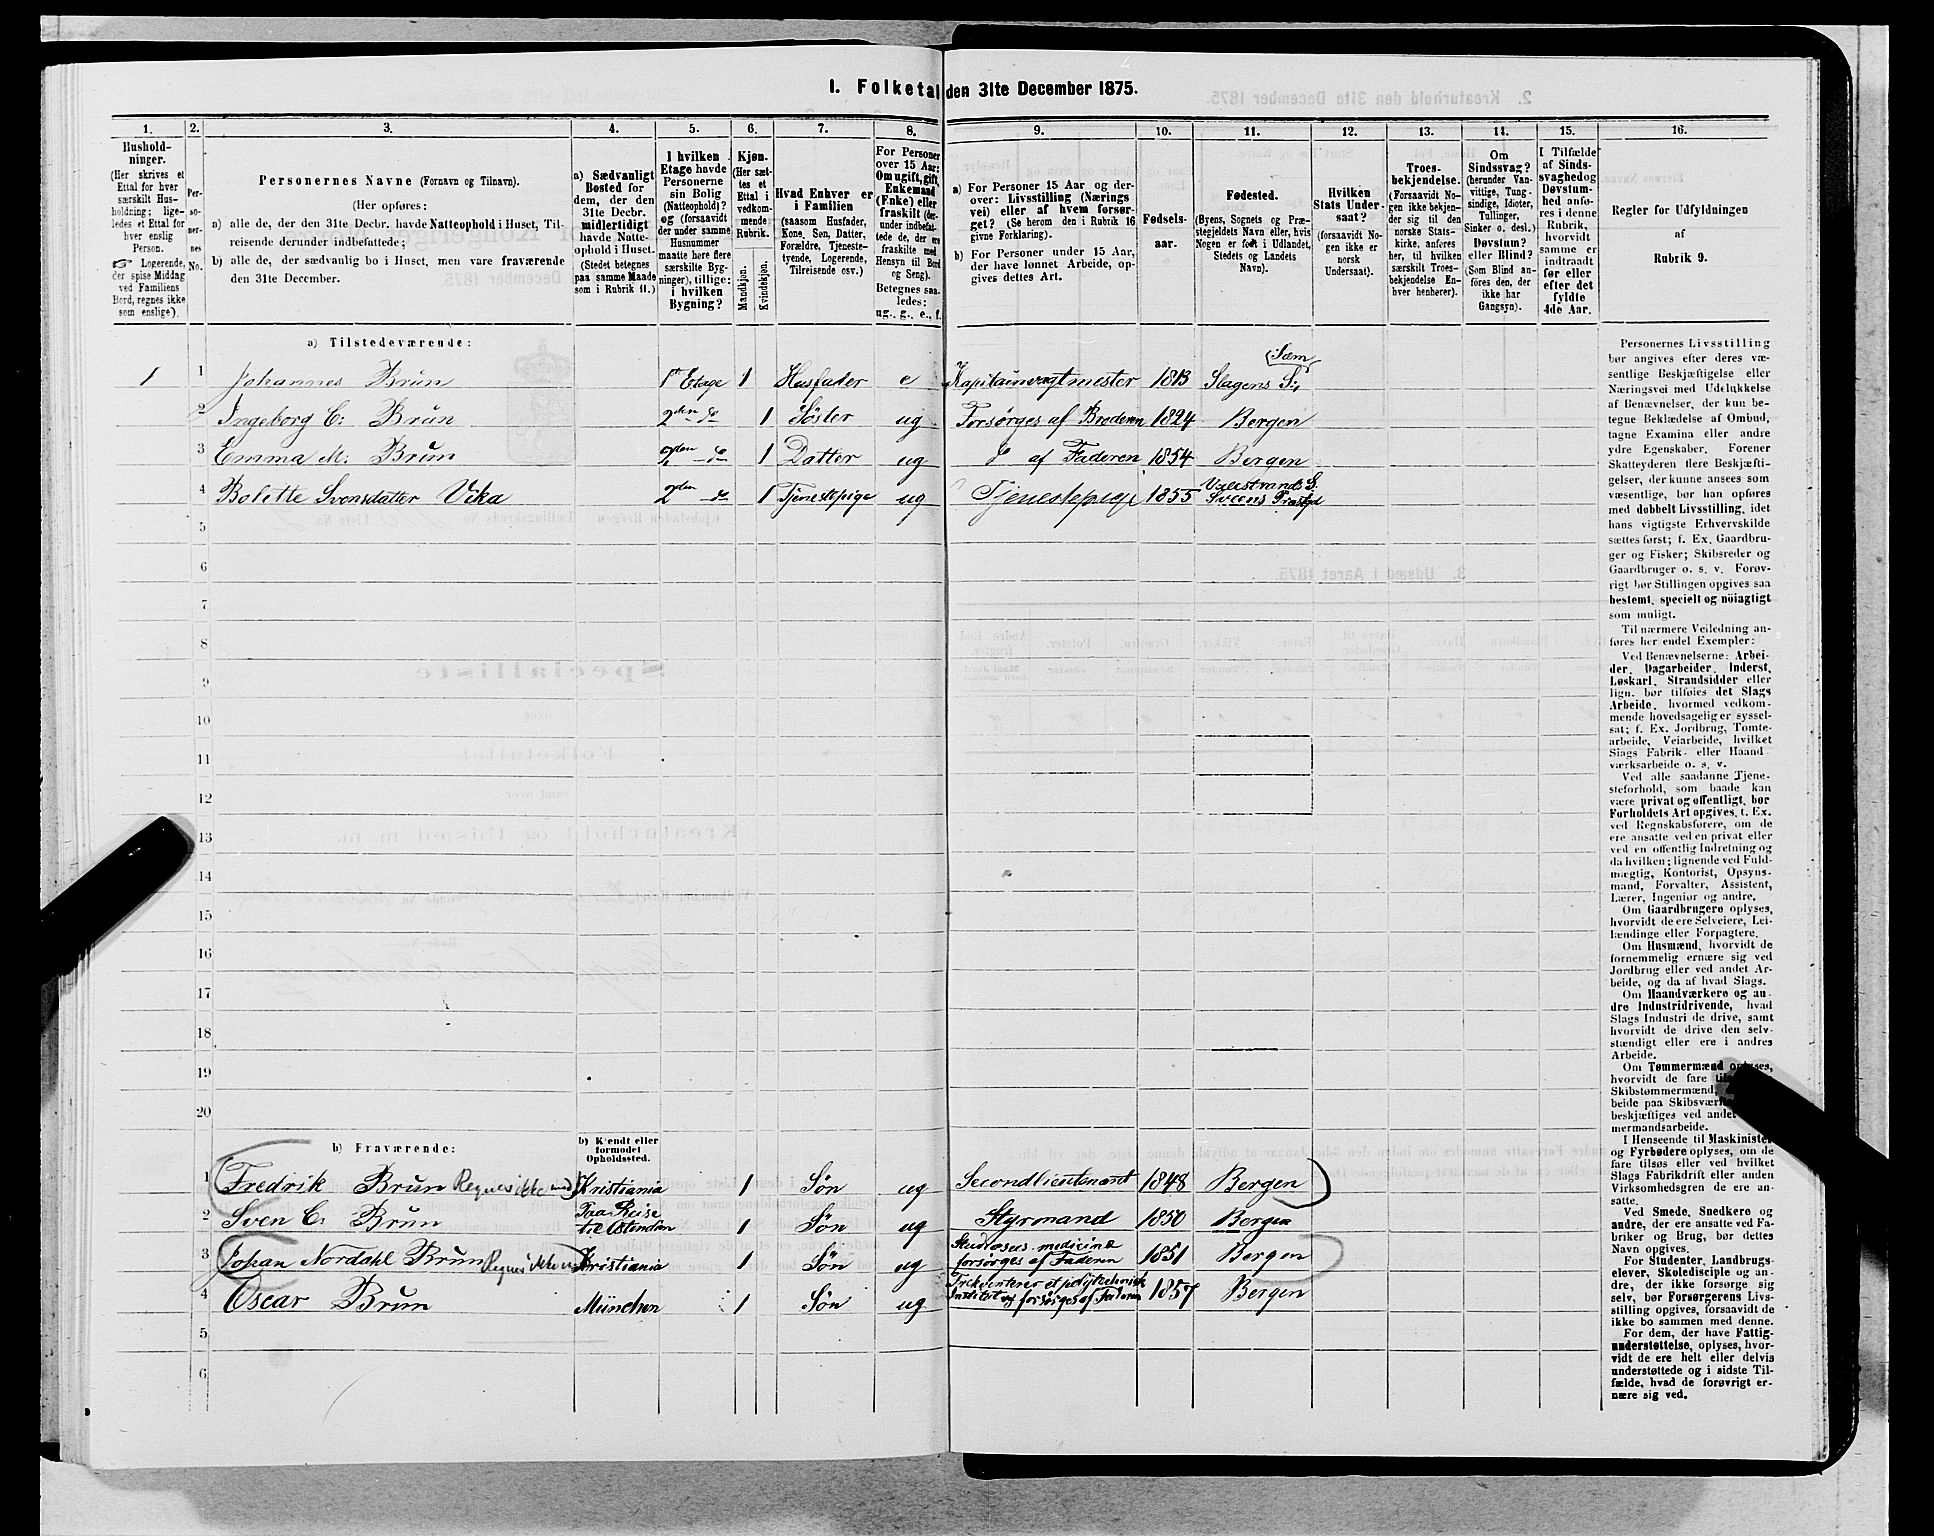 1. Folketal den 31te December 1875.
1. 2. 3. 4. 5. 6. 7. 8. 9. 10. 11. 12. 13. 14. 15. 16.
Hushold-
ninger.
(Her skrives et
Ettal for hver
særskilt Hus-
holdning; lige-
ledes et Ettal for
hver enslig
Person.
☞ Logerende,
der spise Middag
ved Familiens
Bord, regnes ikke
som enslige).
Per-
so-
ner-
nes
No.
Personernes Navne (Fornavn og Tilnavn).
(Her opføres:
a) alle de, der den 31te Decbr. havde Natteophold i Huset, Til-
reisende derunder indbefattede;
b) alle de, der sædvanlig bo i Huset, men vare fraværende
den 31te December.
a) Sædvanligt
Bosted for
dem, der den
31te Decbr.
midlertidigt
havde Natte-
ophold i Huset.
(Stedet betegnes
paa samme Maade
som i Rubrik 11.)
I hvilken
Etage havde
Personerne
sin Bolig
(Natteophold)?
og (forsaavidt
der under samme
Husnummer
maatte høre flere
særskilte Byg-
ninger), tillige:
i hvilken
Bygning?
Kjøn.
(Her sæt-
tes et
Ettal i
vedkom-
mende
Rubrik.
Mandkjøn.
Kvindekjøn.
Hvad Enhver er
i Familien
(saasom Husfader,
Kone, Søn, Datter,
Forældre, Tjeneste-
tyende, Logerende,
Tilreisende osv.)
For Personer
over 15 Aar:
Om ugift, gift,
Enkemand
(Enke) eller
fraskilt (der-
under indbefat-
tede de, der ere
fraskilte med
Hensyn til Bord
og Seng).
Betegnes saa-
ledes:
ug., g., e., f.
a) For Personer 15 Aar og der-
over: Livsstilling (Nærings
vei) eller af hvem forsør-
get? (Se herom den i Rubrik 16
givne Forklaring).
b) For Personer under 15 Aar,
der have lønnet Arbeide, op-
gives dettes Art.
Fødsels-
aar.
Fødested.
(Byens, Sognets og Præ-
stegjeldets Navn eller, hvis
Nogen er født i Udlandet,
Stedets og Landets
Navn).
Hvilken
Stats Under-
saat?
(forsaavidt No-
gen ikke er
norsk
Undersaat).
Troes-
bekjendelse.
(Forsaavidt No-
gen ikke bekjen-
der sig til den
norske Stats-
kirke, anføres
her, til hvilken
særskilt Troes-
bekjendelse En-
hver henhører).
Om
Sindssvag?
(herunder Van-
vittige, Tung-
sindige, Idioter,
Tullinger,
Sinker o. desl.)
Døvstum?
eller Blind?
(Som Blind an-
føres den, der
ikke har
Gangsyn).
I Tilfælde
af Sinds-
svaghed og
Døvstum-
hed anfø-
res i denne
Rubrik,
hvorvidt
samme er
indtraadt
før eller
efter det
fyldte
4de Aar.
Regler for Udfyldningen
af
Rubrik 9.
a) Tilstedeværende:
1 1 Johannes Brun 1ste Etage 1 Husfader e Kapitainvagtmester 1813 Slagens S.
2 Ingeborg C: Brun 2den do 1 Søster ug Forsørges af Broderen 1824 Bergen
3 Emma M: Brun 2den do 1 Datter ug do af Faderen 1854 Bergen
4 Bolette Svensdatter Vika 2den do 1 Tjenestepige ug Tjenestepige 1855 Valestrands S.
Sveens Præstgd
5
6
7
8
9
10
11
12
13
14
15
16
17
18
19
20
b) Fraværende:
b) Kjendt eller
formodet
Opholdssted.
1 Fredrik Brun Regnes ikke med Kristiania 1 Søn ug Secondlieutenant 1848 Bergen
2 Sven C: Brun Paa Reise
til Ostendan 1 Søn ug Styrmand 1850 Bergen
3 Johan Nordahl Brun Regnes ikke med Kristiania 1 Søn ug Studiosus medicinæ
forsørges af Faderen 1851 Bergen
4 Oscar Brun München 1 Søn ug Frekventerer et polytechnisk
Institut og forsørges af Faderen 1857 Bergen
5
6
Personernes Livsstilling
bør angives efter deres væ-
sentlige Beskjæftigelse eller
Næringsvei med Udelukkelse
af Benævnelser, der kun be-
tegne Beklædelse af Ombud,
tagne Examina eller andre
ydre Egenskaber. Forener
Skatteyderen flere Beskjæfti-
gelser, der kunne ansees som
væsentlige, bør han opføres
med dobbelt Livsstilling, idet
hans vigtigste Erhvervskilde
sættes først; f. Ex. Gaardbru-
ger og Fisker; Skibsreder og
Gaardbruger o. s. v. Forøv-
rigt bør Stillingen opgives saa
bestemt, specielt og nöiagtigt
som muligt.
Til nærmere Veiledning an-
føres her endel Exempler:
Ved Benævnelserne: Arbei-
der, Dagarbeider, Inderst,
Løskarl, Strandsidder eller
lign. bør tilføies det Slags
Arbeide, hvormed vedkom-
mende hovedsagelig er syssel-
sat; f. Ex. Jordbrug, Tomte-
arbeide, Veiarbeide, hvilket
Slags Fabrik- eller Haand
værksarbeide o. s. v.
Ved alle saadanne Tjene-
steforhold, som baade kan
være privat og offentligt, bør
Forholdets Art opgives, t. Ex.
ved Regnskabsførere, om de
ere ansatte ved en privat eller
ved en offentlig Indretning og
da hvilken; lignende ved Fuld-
mægtig, Kontorist, Opsyns-
mand, Forvalter, Assistent,
Lærer, Ingeniør og andre.
Om Gaardbrugere oplyses,
hvorvidt de ere Selveiere, Lei-
lændinge eller Forpagtere.
Om Husmænd, hvorvidt de
fornemmelig ernære sig ved
Jordbrug eller ved andet Ar-
beide, og da af hvad Slags.
Om Haandværkere og an-
dre Industridrivende, hvad
Slags Industri de drive, samt
hvorvidt de drive den selv-
stændigt eller ere i andres
Arbeide.
Om Tømmermænd oplyses,
hvorvidt de fare
Skibstømmermænd,
beide paa
beskjæftiges ved andet
mermandsarbeide.
I Henseende til Maskinister
og Fyrbødere oplyses, om de
fare tilsøs eller ved hvilket
Slags Fabrikdrift eller anden
Virksomhedsgren de ere an-
satte.
Ved Smede, Snedkere og
andre, der ere ansatte ved Fa-
briker og Brug, bør dettes
Navn opgives.
For Studenter, Landbrugs-
elever, Skoledisciple og an-
dre, der ikke forsørge sig
selv, bør Forsørgerens Livs-
stilling opgives, forsaavidt de
ikke bo sammen med denne.
For dem, der have Fattig-
understøttelse, oplyses, hvor-
vidt de ere helt eller delvis
understøttede og i sidste Til-
fælde, hvad de forøvrigt er-
nære sig ved.